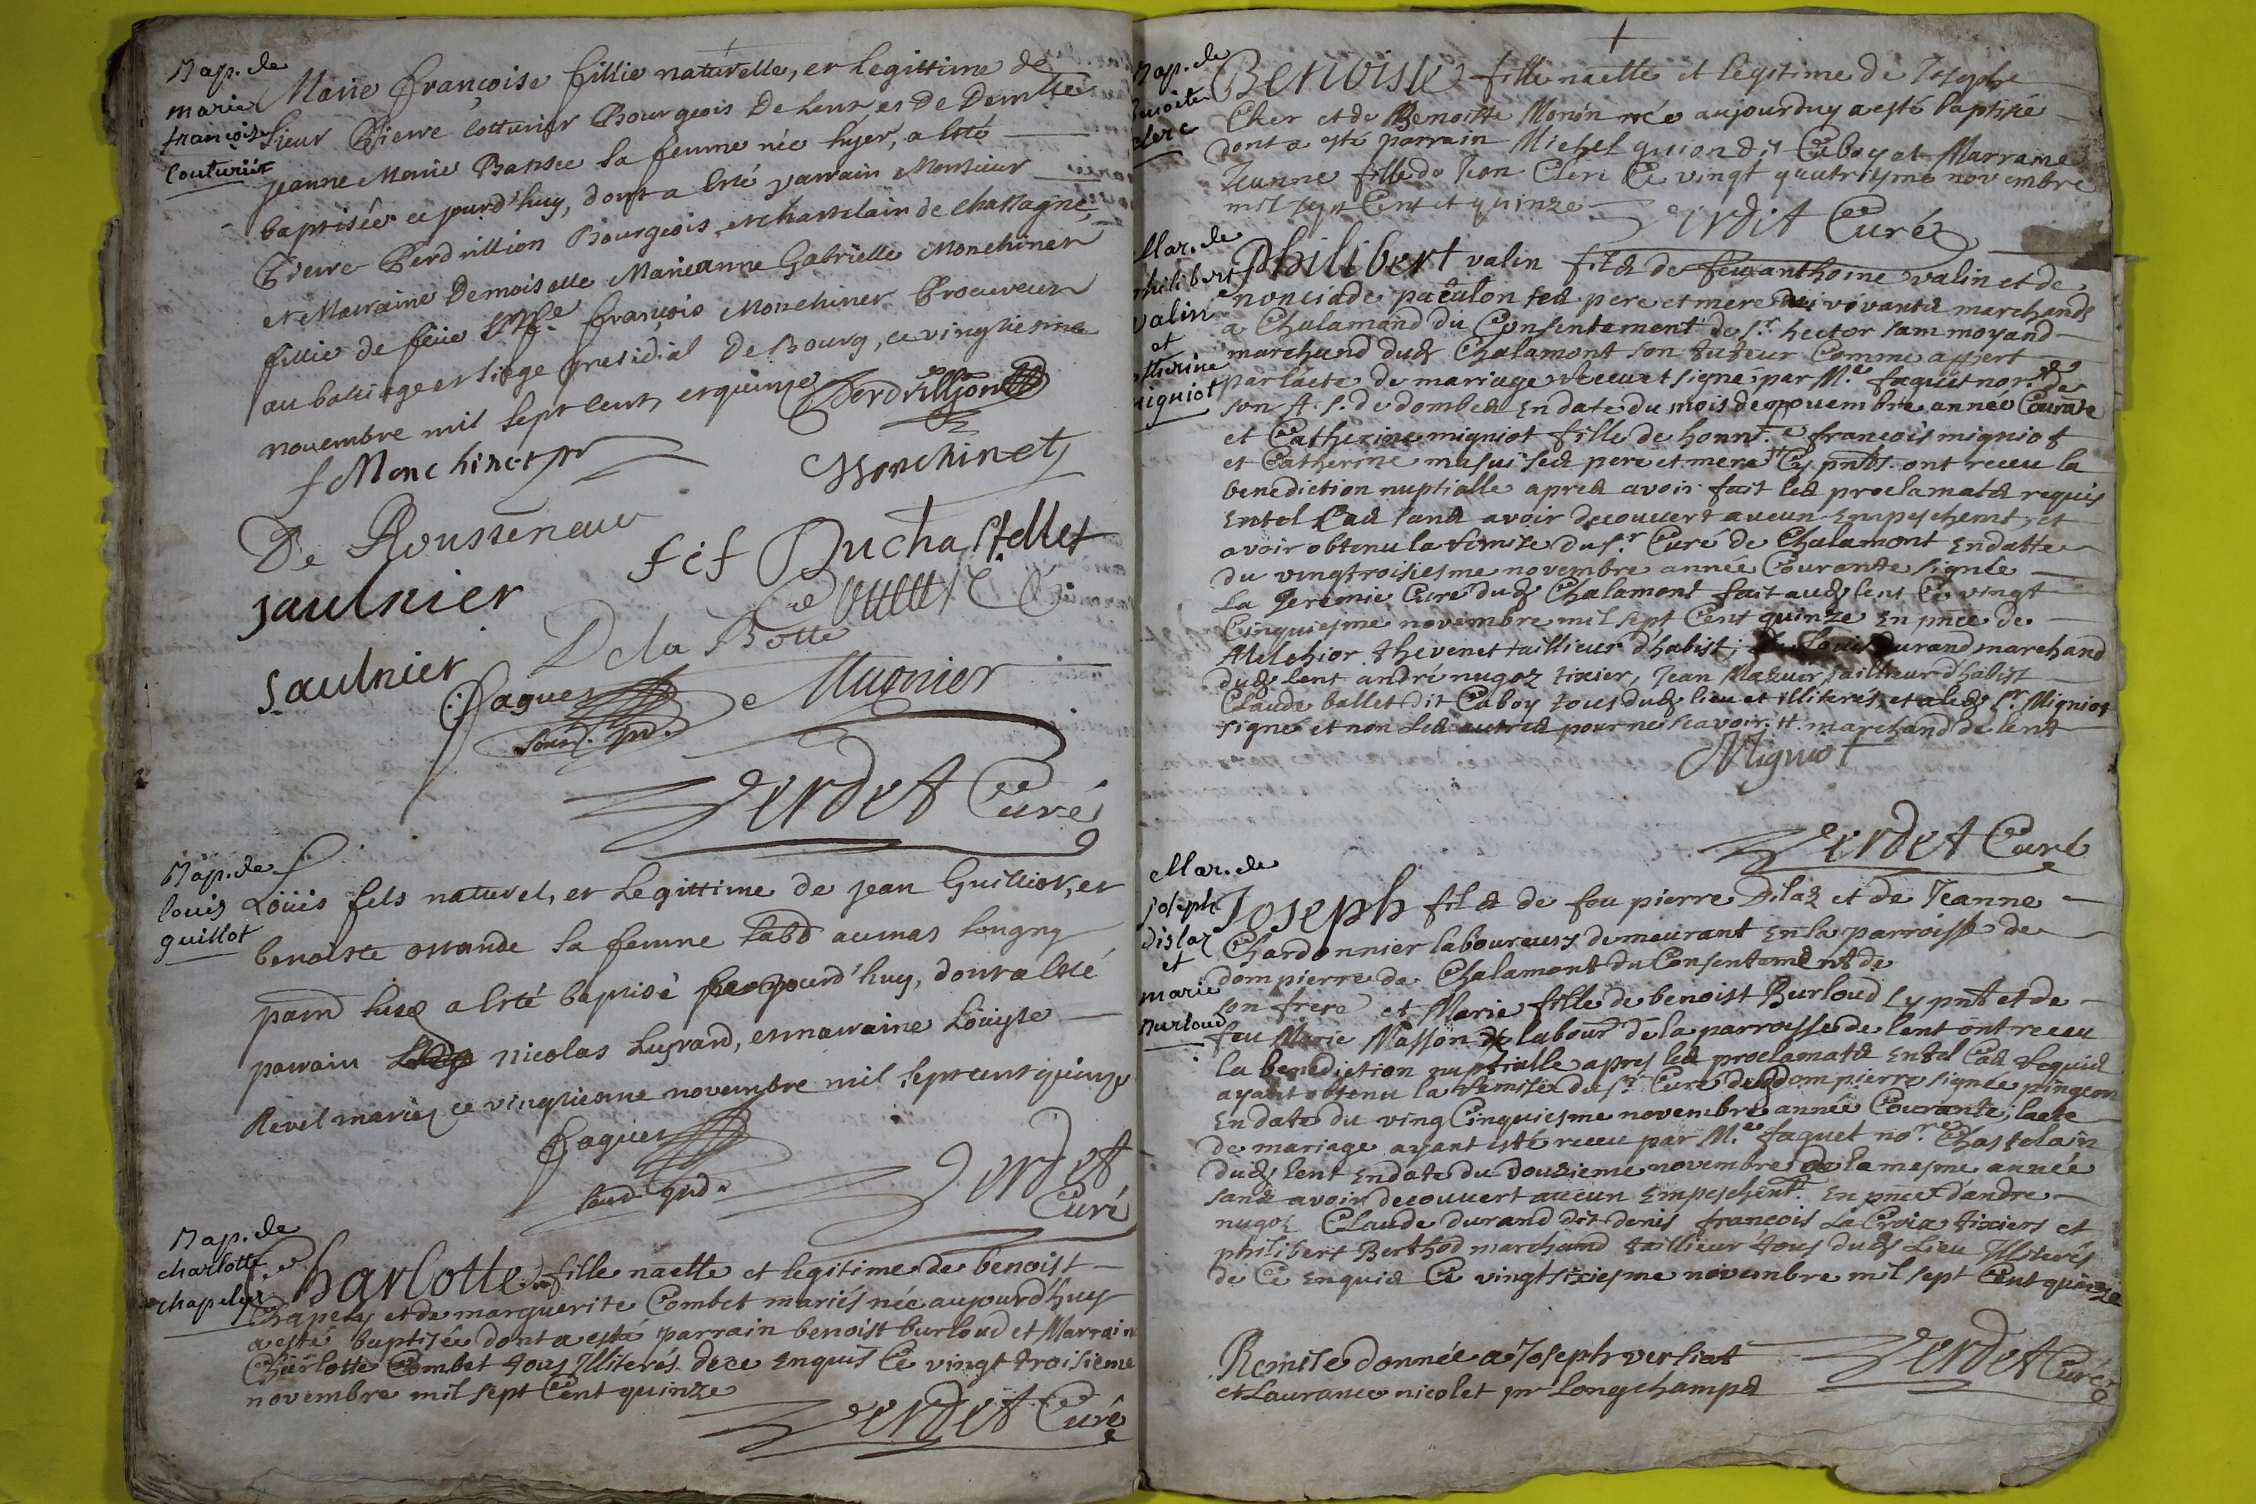 Bap. de
marie
françoise
couturier
Marie françoise fillie naturelle, et legittime de
sieur Pierre Cotturier Bourgeois De Lent, et de Demlle
jeanne Marie la femme née hyer, a esté
baptisée ce jourd'huy, dont a esté parrain Monsieur
Pierre Perdrillion Bourgeois, et chastelain de chassagne,
et Marraine Demoiselle Marieanne Gabrielle Monchinet
fillie de feüe françois Monchinet Procureur
au baliage et siege presidial De Bourg, ce vingtiesme
novembre mil sept cent et quinze Perdrillion
f Monchinet Monchinet
De Rousseneau
fcf Duchastellet
saulnier
De la Botte
saulnier
Faguet Munier
Verdet Curé
Bap. de
louis
guillot
Loüis fils naturel, et Legittime de jean Guilliot, et
benoiste la femme aumas longny
a esté baptisé ce jourd'huy, dont a esté
parrain Nicolas Luyrard, et marraine Loüyse
Revel mariez ce vingtiesme novembre mil sept cent quinze
Faguet
Verdet
Curé
Bap. de
charlotte
chapely
Charlotte fille naelle et legitime de benoist
Chapely et de marguerite Combet mariés née aujourdhuy
a esté baptisée dont a esté parrain benoist burloud et Marraine
Charlotte Combet tous Illiterés de ce enquis Ce vingt troisieme
novembre mil sept Cent quinze
Verdet Curé
Bap. de
benoite
clerc
Benoiste fille naelle et legitime de Joseph
Cler et de Benoiste Monin née aujourduy a esté baptisée
dont a esté parrain Michel guion dit Caboy et Marraine
Jeanne fille de Jean Clerc Ce vingt quatriesme novembre
mil sept Cent et quinze Verdet Curé
Mar. de
philibert
valin
et
Catherine
migniot
Philibert valin fils de feu anthoine valin et de
nonciade pacalon ses pere et mere vivants marchands
a Chalamond du Consentement de sr. hector jammoyand
marchand dudt Chalamont son tuteur Comme appert
par lacte de mariage receu et signé par Me. faguet nore.
son A. S. de dombes En date du mois de novembre année Courante
et Catherine migniot fille de honn.e françois migniot
et Catherine masui ses pere et mere Cy pnts. ont receu la
benediction nuptialle apres avoir fait les proclamats requis
En tel Cas sans avoir decouvert aucun Empeschemt, et
avoir obtenu la remise du sr. Curé de Chalamont En datte
du vingtroisiesme novembre année Courante signée
La Jeremie Curé dudt Chalamont fait audt lent Ce vingt
Cinquiesme novembre mil sept Cent quinze En pnce de
Melchior thevenet taillieur d'habist; Louis durand marchand
dudt lent andré nugoz tixier, Jean Mazuir, tailleur d'habist
Claude ballet dit Caboy tous dudt lieu et illiterés, et a ledt sr. Migniot
signé et non les autres pour ne scavoir. # marchand de lent
Migniot
Verdet Curé
Mar. de
joseph
dislaz
et
marie
burloud
Joseph fils de feu pierre Dilaz et de Jeanne
Chardonnier laboureurs demeurant En la parroisse de
dompierre de Chalamont du Consentement de
son frere et Marie fille de benoist Burloud Cy pnt et de
feu Marie Masson labour de la parroisse de lent ont receu
la benediction nuptialle apres les proclamats En tel Cas Requis
ayant obtenu la remise du sr. Curé dudt dompierre signée pingeon
En date du ving Cinquiesme novembre année Courante; lacte
de mariage ayant esté receu par Me. faguet nore. Chastelain
dudt lent En date du douzieme novembre de la mesme année
sans avoir decouvert aucun Empeschent. En pnce d'andre
nugoz Claude durand dit denis françois La Croix tixiers et
philibert Berthod marchand taillieur tous dudt Lieu Illiterés
de Ce Enquis Ce vingtsixiesme novembre mil sept Cent quinze
Verdet Curé
Remise donnée a Joseph verliat
et Laurance nicolet pr Longchamps